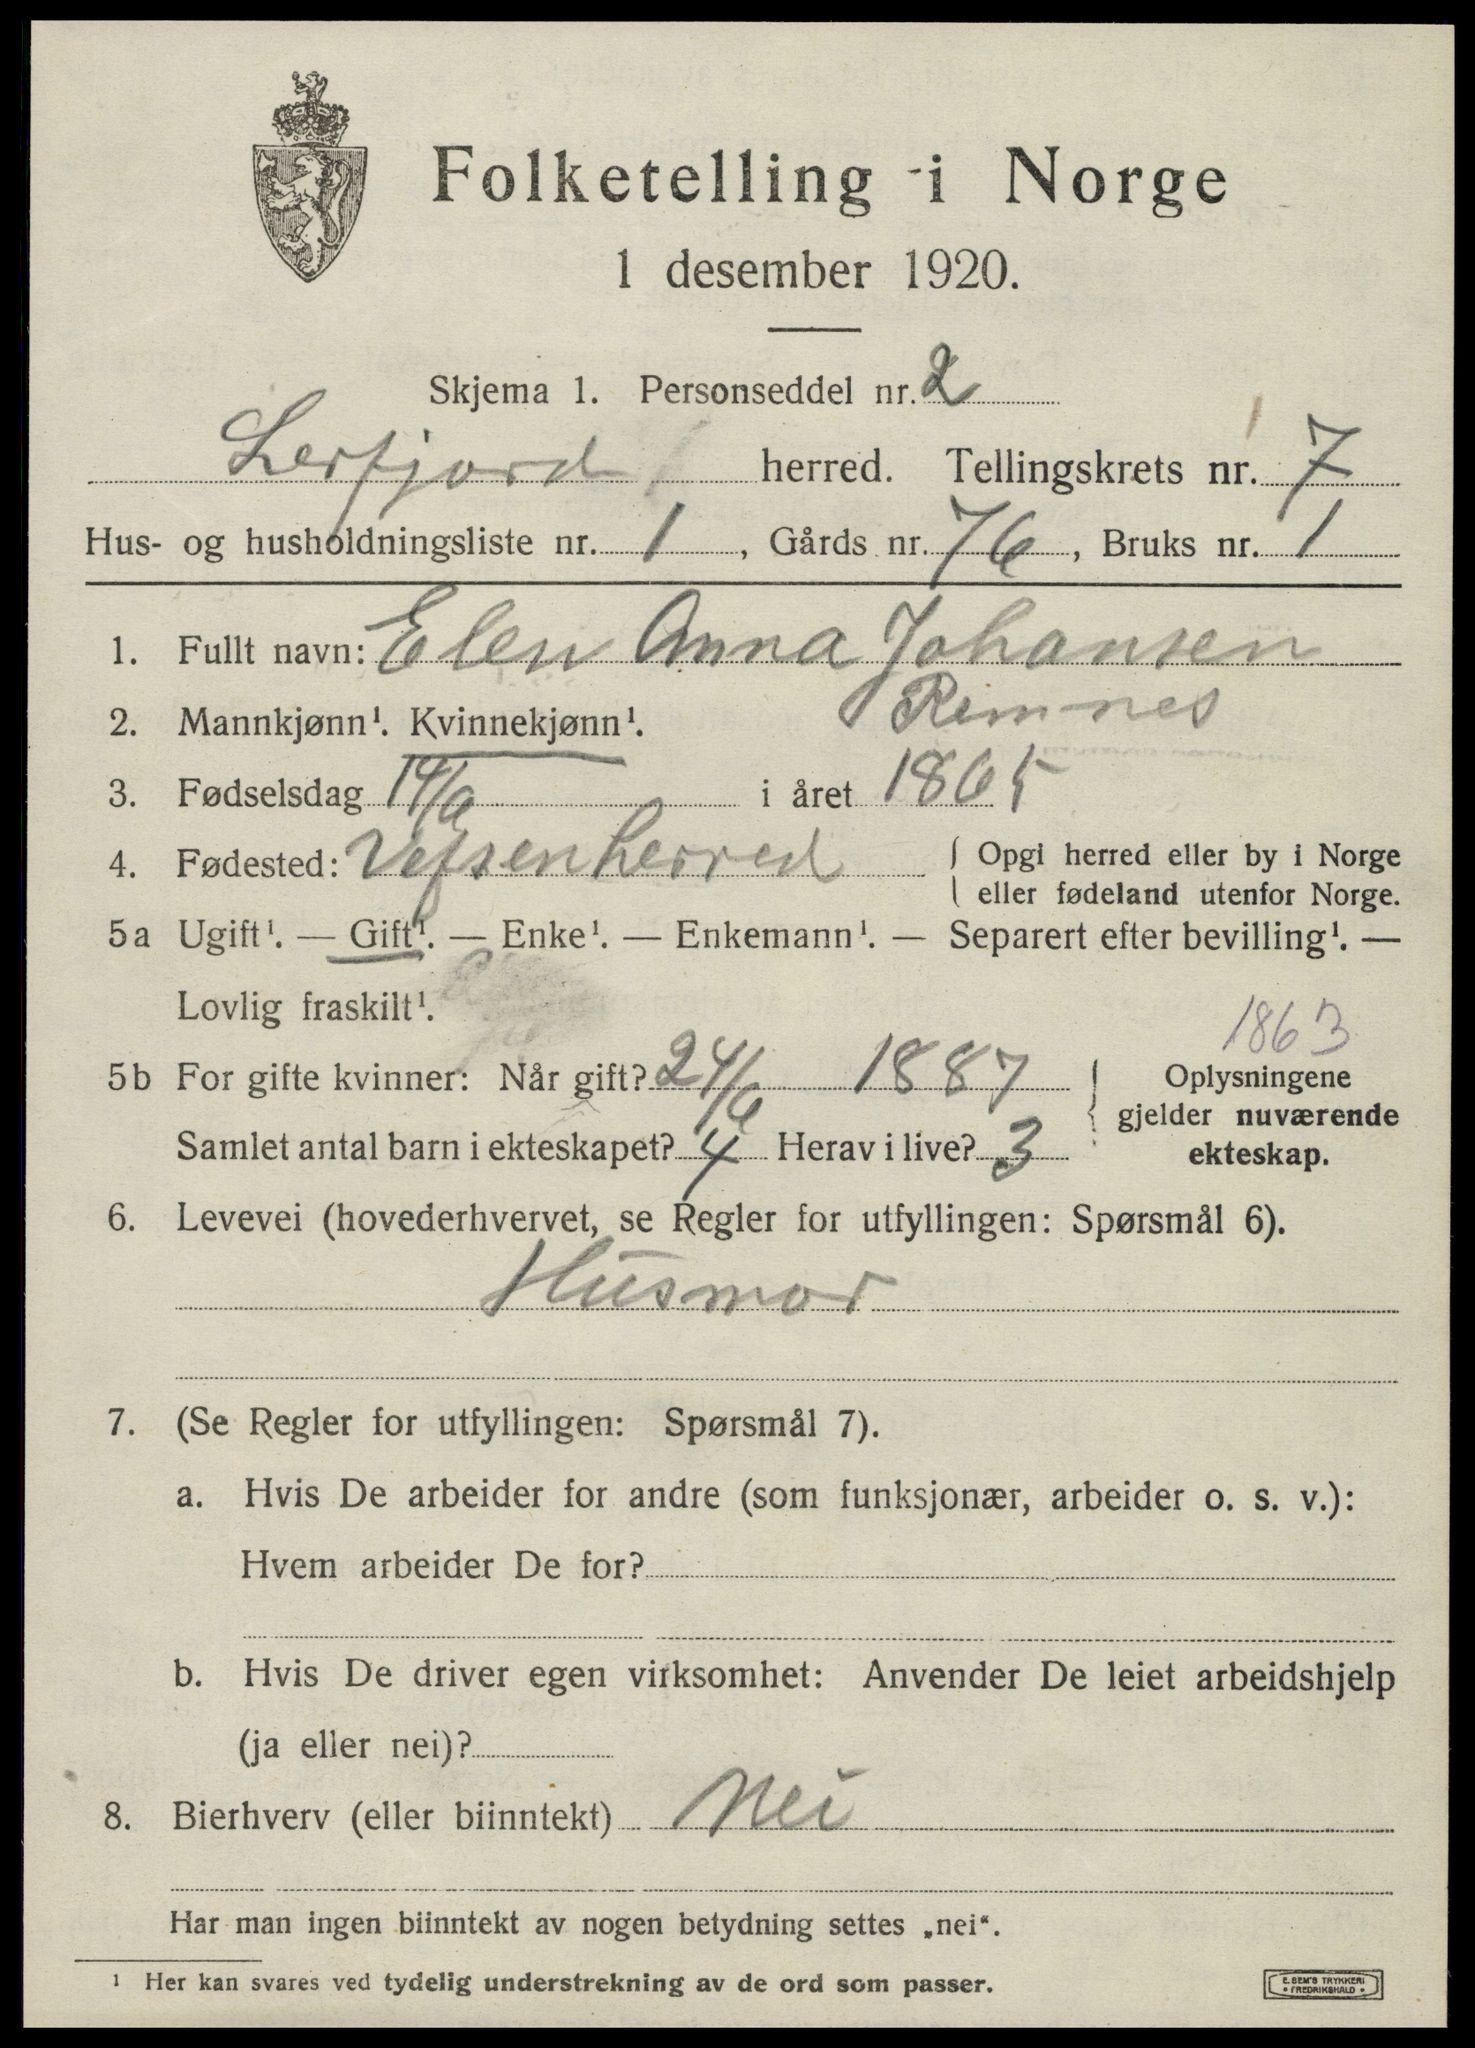 Folketelling i Norge
1 desember 1920.
Skjema 1. Personseddel nr. 2
Lerfjord herred. Tellingskrets nr. 7
Hus- og husholdningsliste nr. 1, Gårds nr. 76, Bruks nr. 1
1. Fullt navn: Elen Anna Johansen
Remnes
2. Mannkjønn¹. Kvinnekjønn¹.
3. Fødselsdag 14/6 i året 1865
4. Fødested: Vefsen herred { Opgi herred eller by i Norge
eller fødeland utenfor Norge.
5a Ugift¹. — Gift¹. — Enke¹. — Enkemann¹. — Separert efter bevilling¹. —
Lovlig fraskilt¹.
1863
5b For gifte kvinner: Når gift? 24/6 1887 { Oplysningene
gjelder nuværende
Samlet antal barn i ekteskapet? 4 Herav i live? 3 ekteskap.
6. Levevei (hovederhvervet, se Regler for utfyllingen: Spørsmål 6).
Husmor
7. (Se Regler for utfyllingen: Spørsmål 7).
a. Hvis De arbeider for andre (som funksjonær, arbeider o. s. v.):
Hvem arbeider De for?
b. Hvis De driver egen virksomhet: Anvender De leiet arbeidshjelp
(ja eller nei)?
8. Bierhverv (eller biinntekt) Nei
Har man ingen biinntekt av nogen betydning settes „nei“.
¹ Her kan svares ved tydelig understrekning av de ord som passer.
E. SEM'S TRYKKERI
• FREDRIKSHALD •